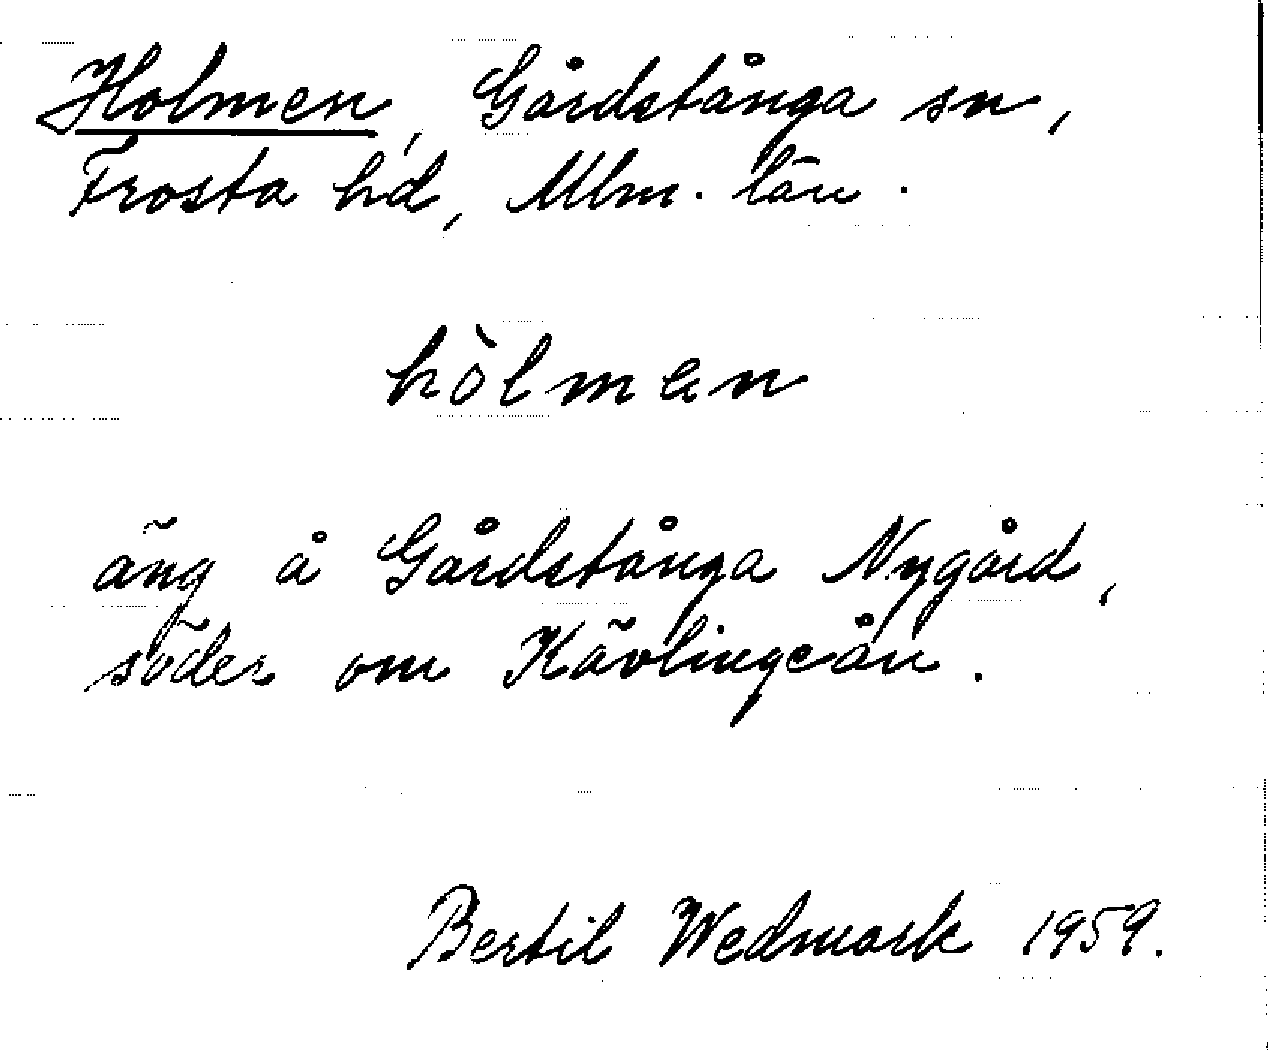 Holmen, Gårdstånga sn,
Frosta hd, Mlm. län.
hòlmen
äng å Gårdstånga Nygård,
söder om Kävlingeån.
Bertil Wedmark 1959.